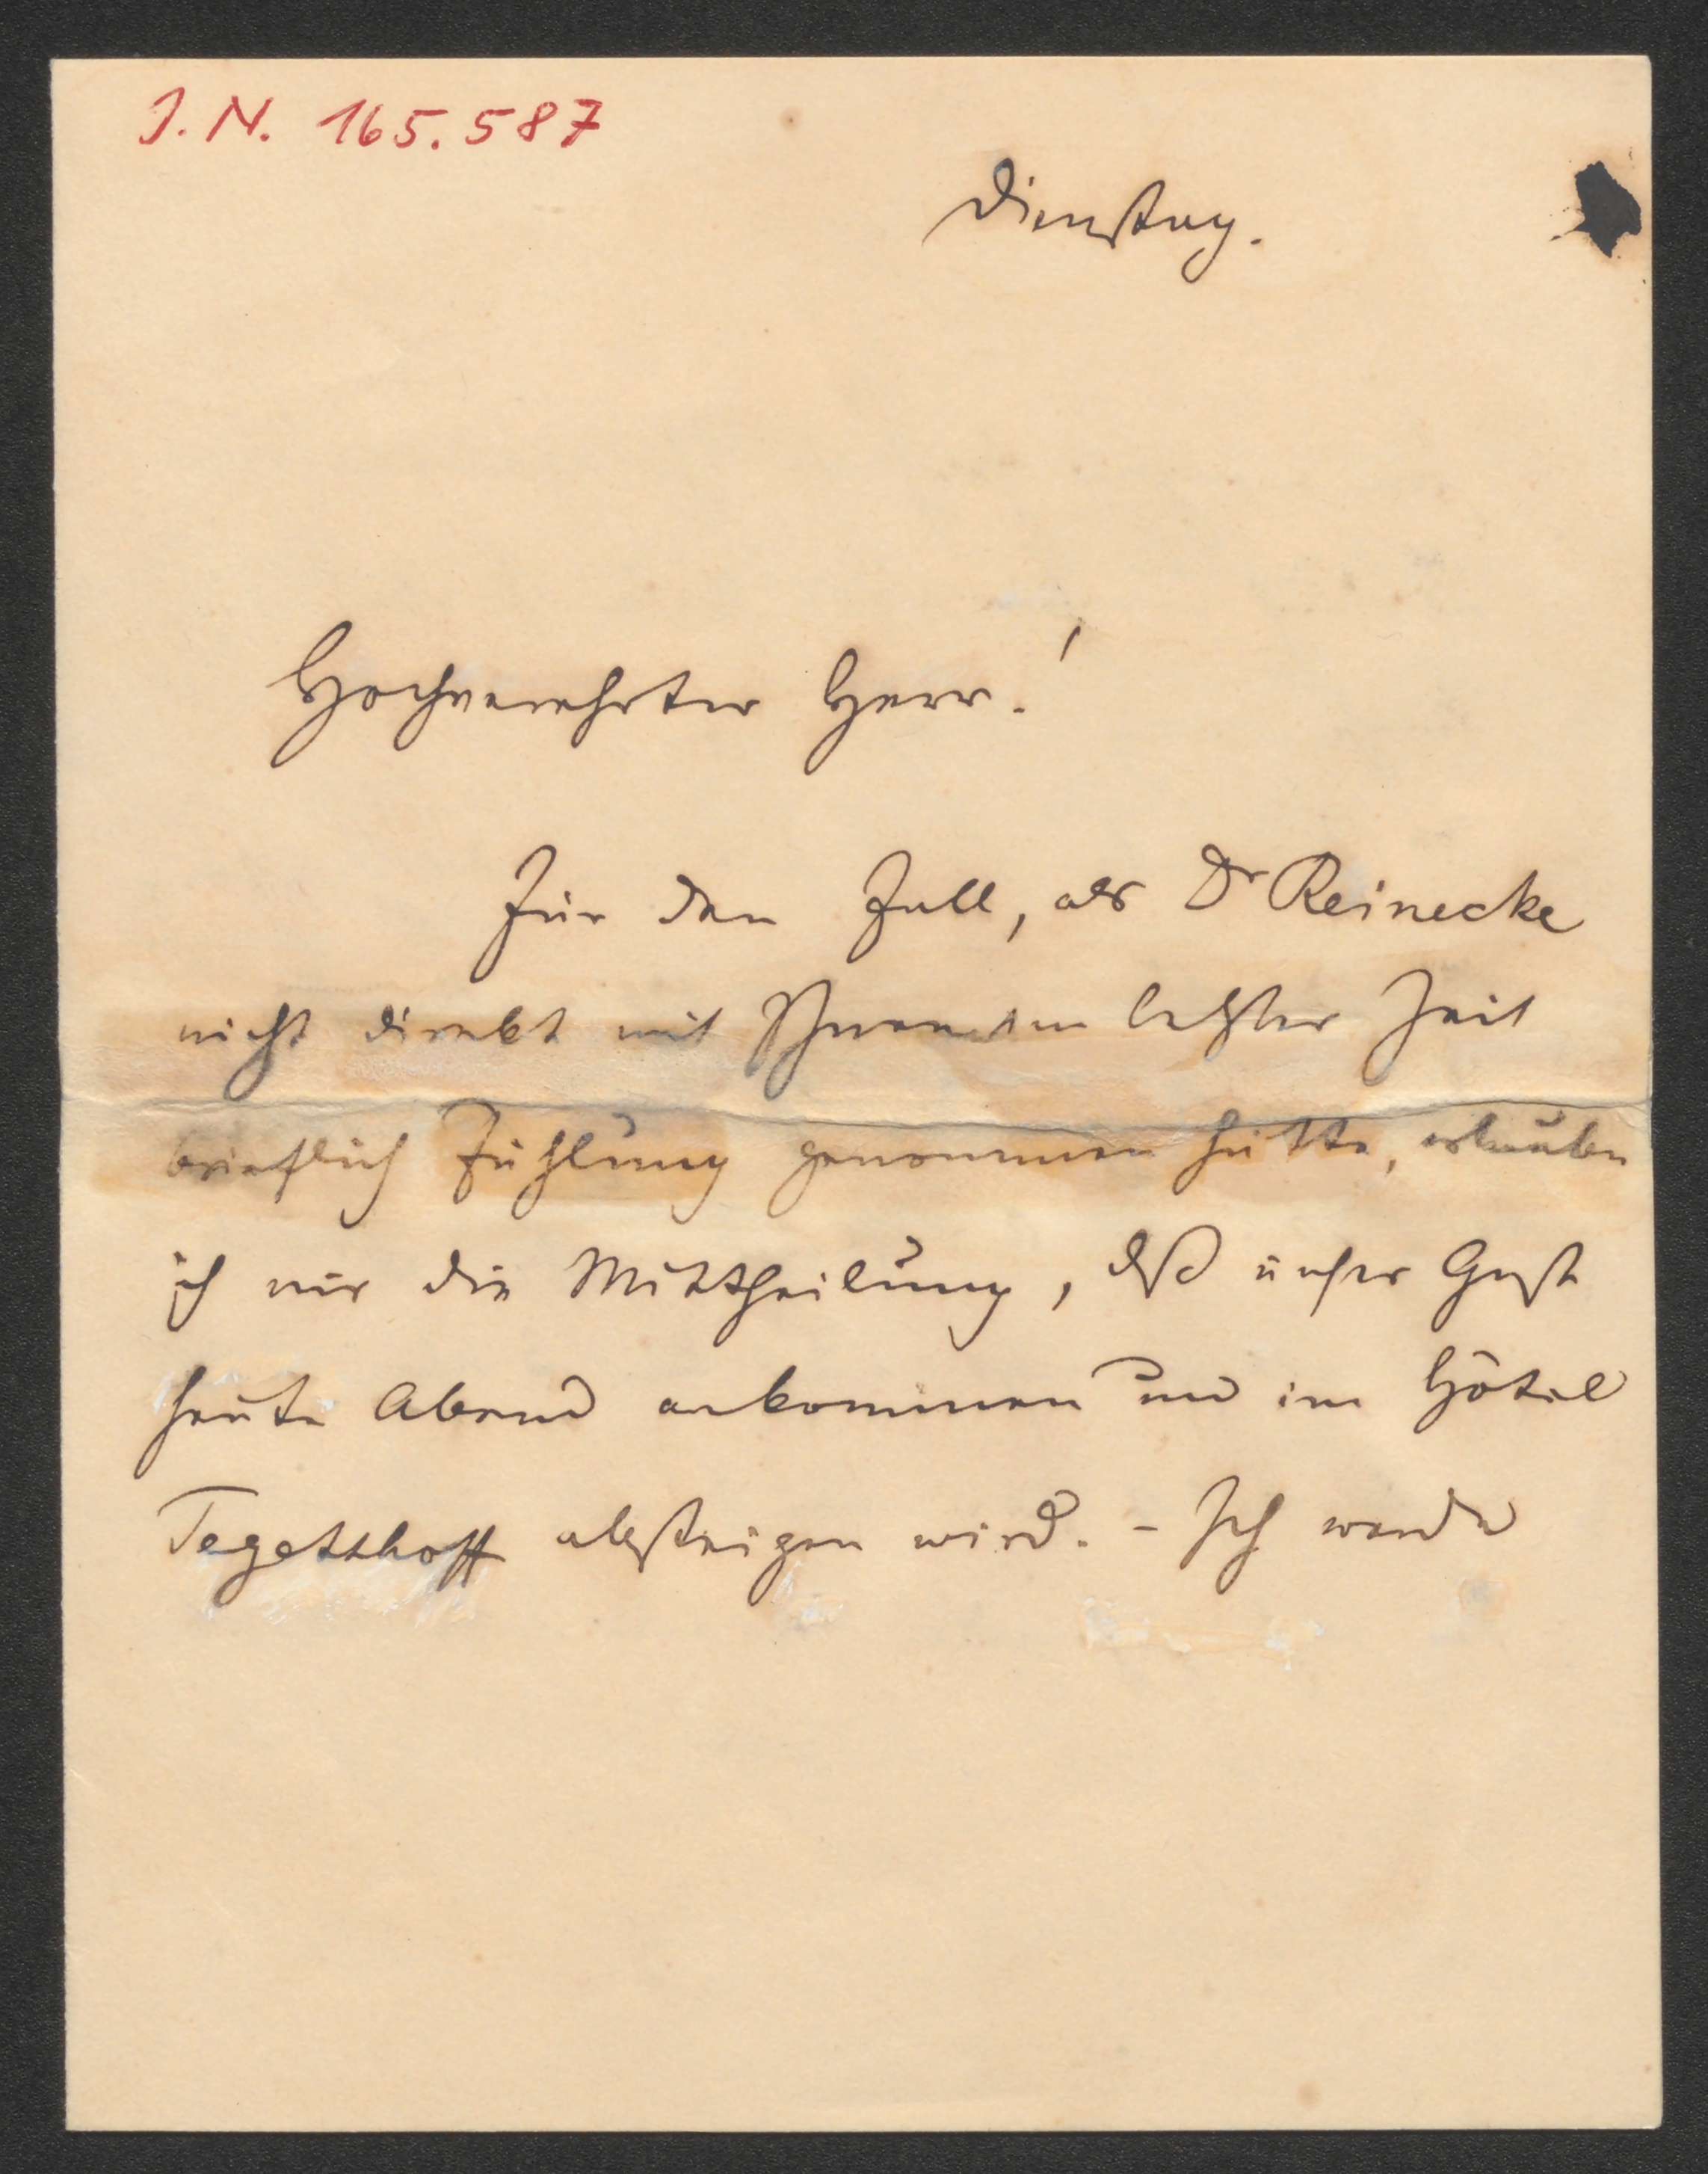 J. N. 165.587
Dienstag.
Hochverehrter Herr!
Für den Fall, als Dr Reinecke
nicht direkt mit Ihnen in letzter Zeit
brieflich Fühlung genommen hätte, erlaube
ich mir die Mittheilung, dß unser Gast
heute Abend ankommen und im Hôtel
Tegetthoff absteigen wird. – Ich werde